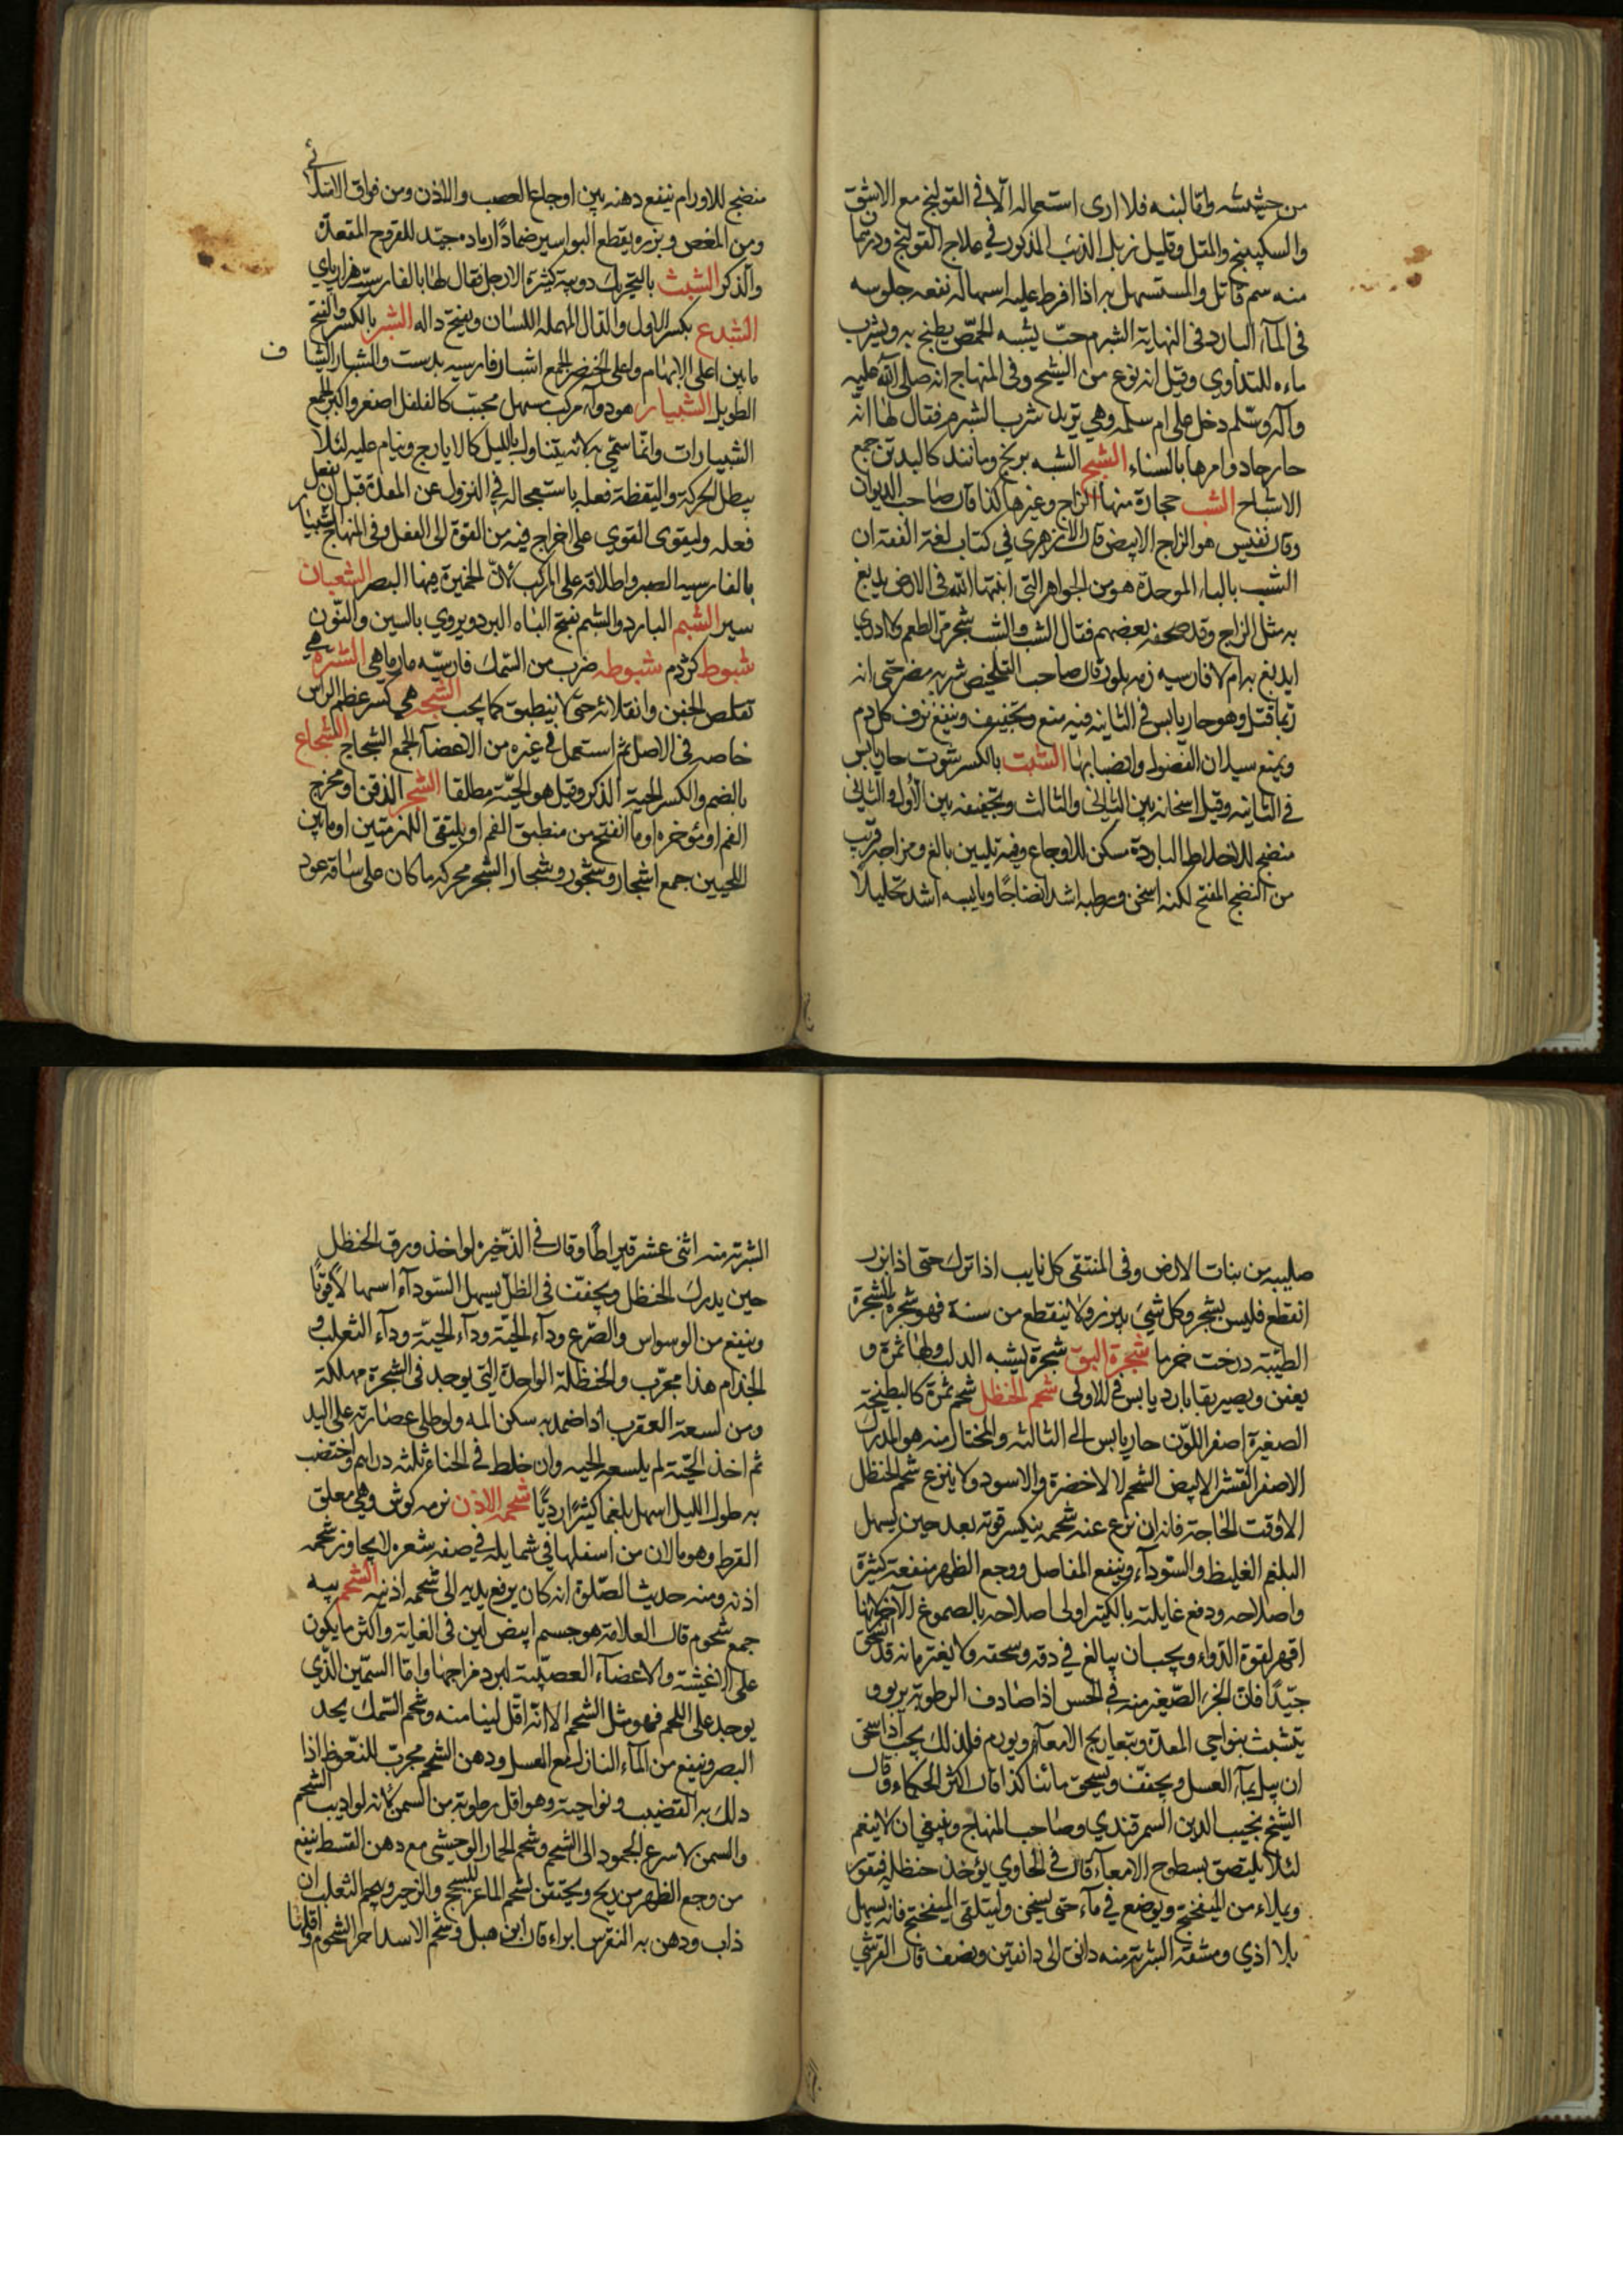 من حشيشته واما لبنه فلا ارى استعماله الا فى القولنج مع الاشق
والسكبينج والمقل وقليل زبل الذئب المذكور في علاج القولنج ودرهمان
منه سم قاتل والمستسهل به اذا افرط عليه اسهاله نفعه جلوسه
فى المآء البارد فى النهاية الشبرم حبّ يشبه الحمّص يطبخ به ويشرب
ماءه للتداوي وقيل انه نوع من الشيح وفى المنهاج انه صلى الله عليه
وآله وسلّم دخل على ام سلمه وهي تريد شرب الشبرم فقال لها انّه
حار جاد وامرها بالسناء الشبح الشبه بريخ ومانند كالبدن جمع
الاشباح الشب حجارة منها الزاج وغيرها كذا قال صاحب الديوان
وقال نفيس هو الزاج الابيض قال الازهرى في كتاب لغة الفقه ان
الشب بالباء الموحدة هو من الجواهر التى انبتها الله فى الارض يدبغ
به مثل الزاج وقد صحفه بعضهم فقال الشث والشث شجر مرّ الطعم ولا ادري
ايدبغ به ام لا فارسيه زمه بلور قال صاحب التلخيص شربه مضر حتى انه
ربما قتل وهو حار يابس فى الثانيه فيه منع وتجفيف وينفع نزف كل دم
ويمنع سيلان الفضول وانصبابها الشبت بالكسر شوت حار يابس
فى الثانيه وقيل اسخانه بين الثانى والثالث وتجفيفه بين الأول والثانى
منضج للاخلاط الباردة مسكن للاوجاع وفيه تليين بالغ ومزاجه قريب
من المنضج المفتح لكنه اسخن ورطبه اشد انضاجًا ويابسه اشد تحليلًا
منضج للاورام ينفع دهنه بين اوجاع العصب والاذن ومن فواق الامتلائى
ومن المغص وبزره يقطع البواسير ضمادًا رماده جيّد للقروح المقعدة
والذكر الشبث بالتحريك دويبة كثيرة الارجل يقال لها بالفارسيّة هزارپاي
الشبدع بكسر الاول والدال المهمله اللسان وبفتح داله الشبر بالكسر والفتح
ما بين اعلى الابهام واعلى الخنصر الجمع اشبار فارسيه بدست والشبار ايضا
الطويل الشبيار هو دوآء مركب مسهل محبّب كالفلفل اصغر واكبر الجمع
الشبيارات وانّما سمّي به لانه يتناول بالليل كالايارج وينام عليه لئلا
يبطل الحركة واليقظة فعله باستعجاله في النزول عن المعدة قبل ان يفعل
فعله وليقوى القوي على اخراج فيه من القوة الى الفعل وفى المنهاج شبيار
بالفارسيه الصبر واطلاقه على المركب لان الخميرة فيها البصر الشبعان
سير الشبم البارد والشبم بفتح الباء البرد ويروي بالسين والنّون
شبوط كژدم شبوطه ضرب من السّمك فارسيّه مارماهى الشترة هي
تقلص الجفن وانقلابه حتى لا ينطبق كما يجب الشجه هي كسر عظم الراس
خاصه فى الاصل ثم استعمل فى غيره من الاعضآء الجمع الشجاج الشجاع
بالضم والكسر الحية الذكر وقيل هو الحيّة مطلقا الشجر الذقن او مخرج
الفم او مؤخره او ما انفتح من منطبق الفم او ملتقى اللهزمتين او ما بين
اللحيين جمع اشجار وشجور وشجار الشجر محركه ما كان على ساقه عود
صليبه من بنات الارض وفى المنتقى كل نابت اذا ترك حتى اذا بزر
انقطع فليس بشجر وكل شئ يبزر ولا ينقطع من سنة فهو شجر الشجرة
الطيّبة درخت خرما شجرة البق شجرة يشبه الدلب ولها ثمرة و
يعفن ويصير بقا بارد يابس فى الاولى شحم الحنظل شحم ثمرة كالبطيخة
الصغيرة اصفر اللّون حار يابس الى الثالثه والمختار منه هو المدرك
الاصفر القشر الابيض الشحم لا الاخضرة والاسود ولا ينزع شحم الحنظل
الا وقت الحاجة فانه ان نزع عنه شحمه ينكسر قوته بعد حين يسهل
البلغم الغليظ والسّودآء وينفع المفاصل ووجع الظهر منفعة كثيرة
واصلاحه ودفع غايلته بالكتيرا اولى اصلاحه بالصموغ الآخر لانها
اقهر لقوة الدّواء ويجب ان يبالغ في دقه وسحقه ولا يغتر بانه قد سحق
جيّدًا فان الجزء الصّغير منه في الحس اذا صادف الرطوبة يربو و
يتشبث بنواحى المعدة وبتعاريج الامعآء ويورم فلذلك يجب اذا سحق
ان يبل بمآء العسل ويجفف ويسحق ثانيا كذا قال اكثر الحكماء وقال
الشيخ نجيب الدين السمرقندي وصاحب المنهاج وينبغي ان لا ينعم
لئلا يلتصق بسطوح الامعآء قال فى الحاوي يؤخذ حنظله فيقور
ويملاء من الميفختج ويوضع في مآء حتى يسخن وليتلقى الميفختج فانه يسهل
بلا اذي ومشقة الشربة منه دانق الى دانقين ونصف قال القرشي
الشربة منه اثنى عشر قيراطًا وقال فى الذّخيره لو اخذ ورق الحنظل
حين يدرك الحنظل ويجفف فى الظلّ يسهل السّودآء اسهالًا قويًّا
وينفع من الوسواس والصّرع ودآء الحيّة ودآء الحيّة ودآء الثعلب و
الجذام هذا مجرّب والحنظلة الواحدة التى يوجد فى الشجرة مهلكة
ومن لسعة العقرب اذا ضمد به سكن المه ولو طلى عصارته على اليد
ثم اخذ الحيّة لم يلسعه الحيه وان خلط فى الحناء ثلثه دراهم واختضب
به طول الليل اسهل بلغما كثيرًا رديًّا شحمه الاذن نرمه كوش وهي معلق
القرط وهو ما لان من اسفلها في شمايله في صفه شعره لا يجاوز شحمه
اذنه ومنه حديث الصّلوة انه كان يرفع يديه الى شحمه اذنيه الشحم پيه
جمع شحوم قال العلامة هو جسم ابيض لين فى الغاية واكثر ما يكون
على الاغشية والاعضآء العصبيّة لبرد مزاجها وامّا السّمين الذّي
يوجد على اللحم فهو مثل الشحم الا انّه اقل لينا منه وشحم السّمك يحد
البصر وينفع من المآء النازل مع العسل ودهن الشحم مجرّب للنعّوظ اذا
دلك به القضيب ونواحيه وهو اقل رطوبة من السمن لانه لو اذيب الشحم
والسمن لاسرع الجمود الى الشحم وشحم الحمار الوحشى مع دهن القسط ينفع
من وجع الظهر من ريح ويحتقن لشحم الماعز للسحج والزحير وشحم الثعلب ان
ذاب ودهن به النقرس ابراء قال ابن هبل وشحم الاسد احر الشحوم واقلها